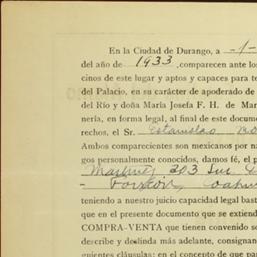 En la Ciudad de Durango, a -1-
del año de 1933, comparecen ante los
cinos de este lugar y aptos y capaces para te
del Palacio, en su carácter de apoderado de
del Río y doña María Josefa F. H. de Mar
nería, en forma legal, al final de este docume
rechos, el Sr. Estanislao
Ambos comparecientes son mexicanos por na
gos personalmente conocidos, damos fé, el p
Martinez 303 Sur
- Torreón, Coahui
teniendo a nuestro juicio capacidad legal bast
que en el presente documento que se extiend
COMPRA-VENTA que tienen convenido s
describe y deslinda más adelante, consignan
guientes cláusulas: en el concepto de que pa